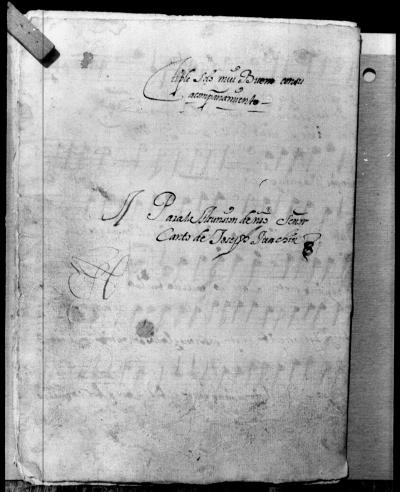 tiple Solo mui Bueno con su
acompañamiento
Para la Asunsion de nrã Señor
Canto de Joseph